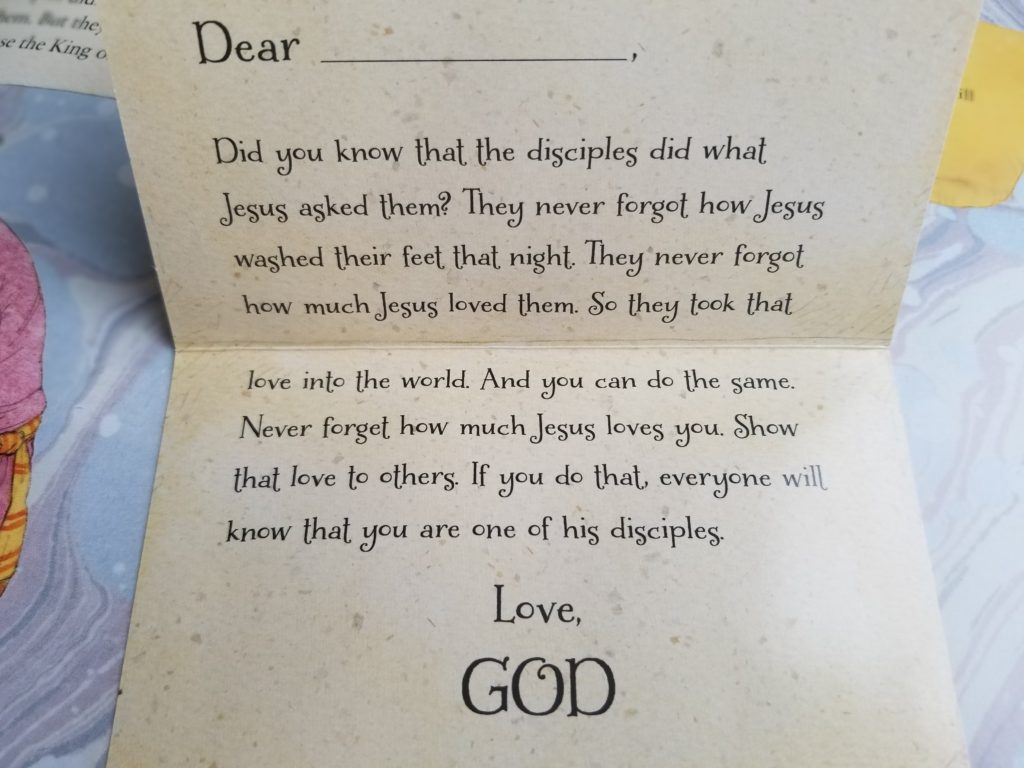 hem. But they
se the King o
Dear ____________,
Did you know that the disciples did what
Jesus asked them? They never forgot how Jesus
washed their feet that night. They never forgot
how much Jesus loved them. So they took that
love into the world. And you can do the same.
Never forget how much Jesus loves you. Show
that love to others. If you do that, everyone will
know that you are one of his disciples.
Love,
GOD